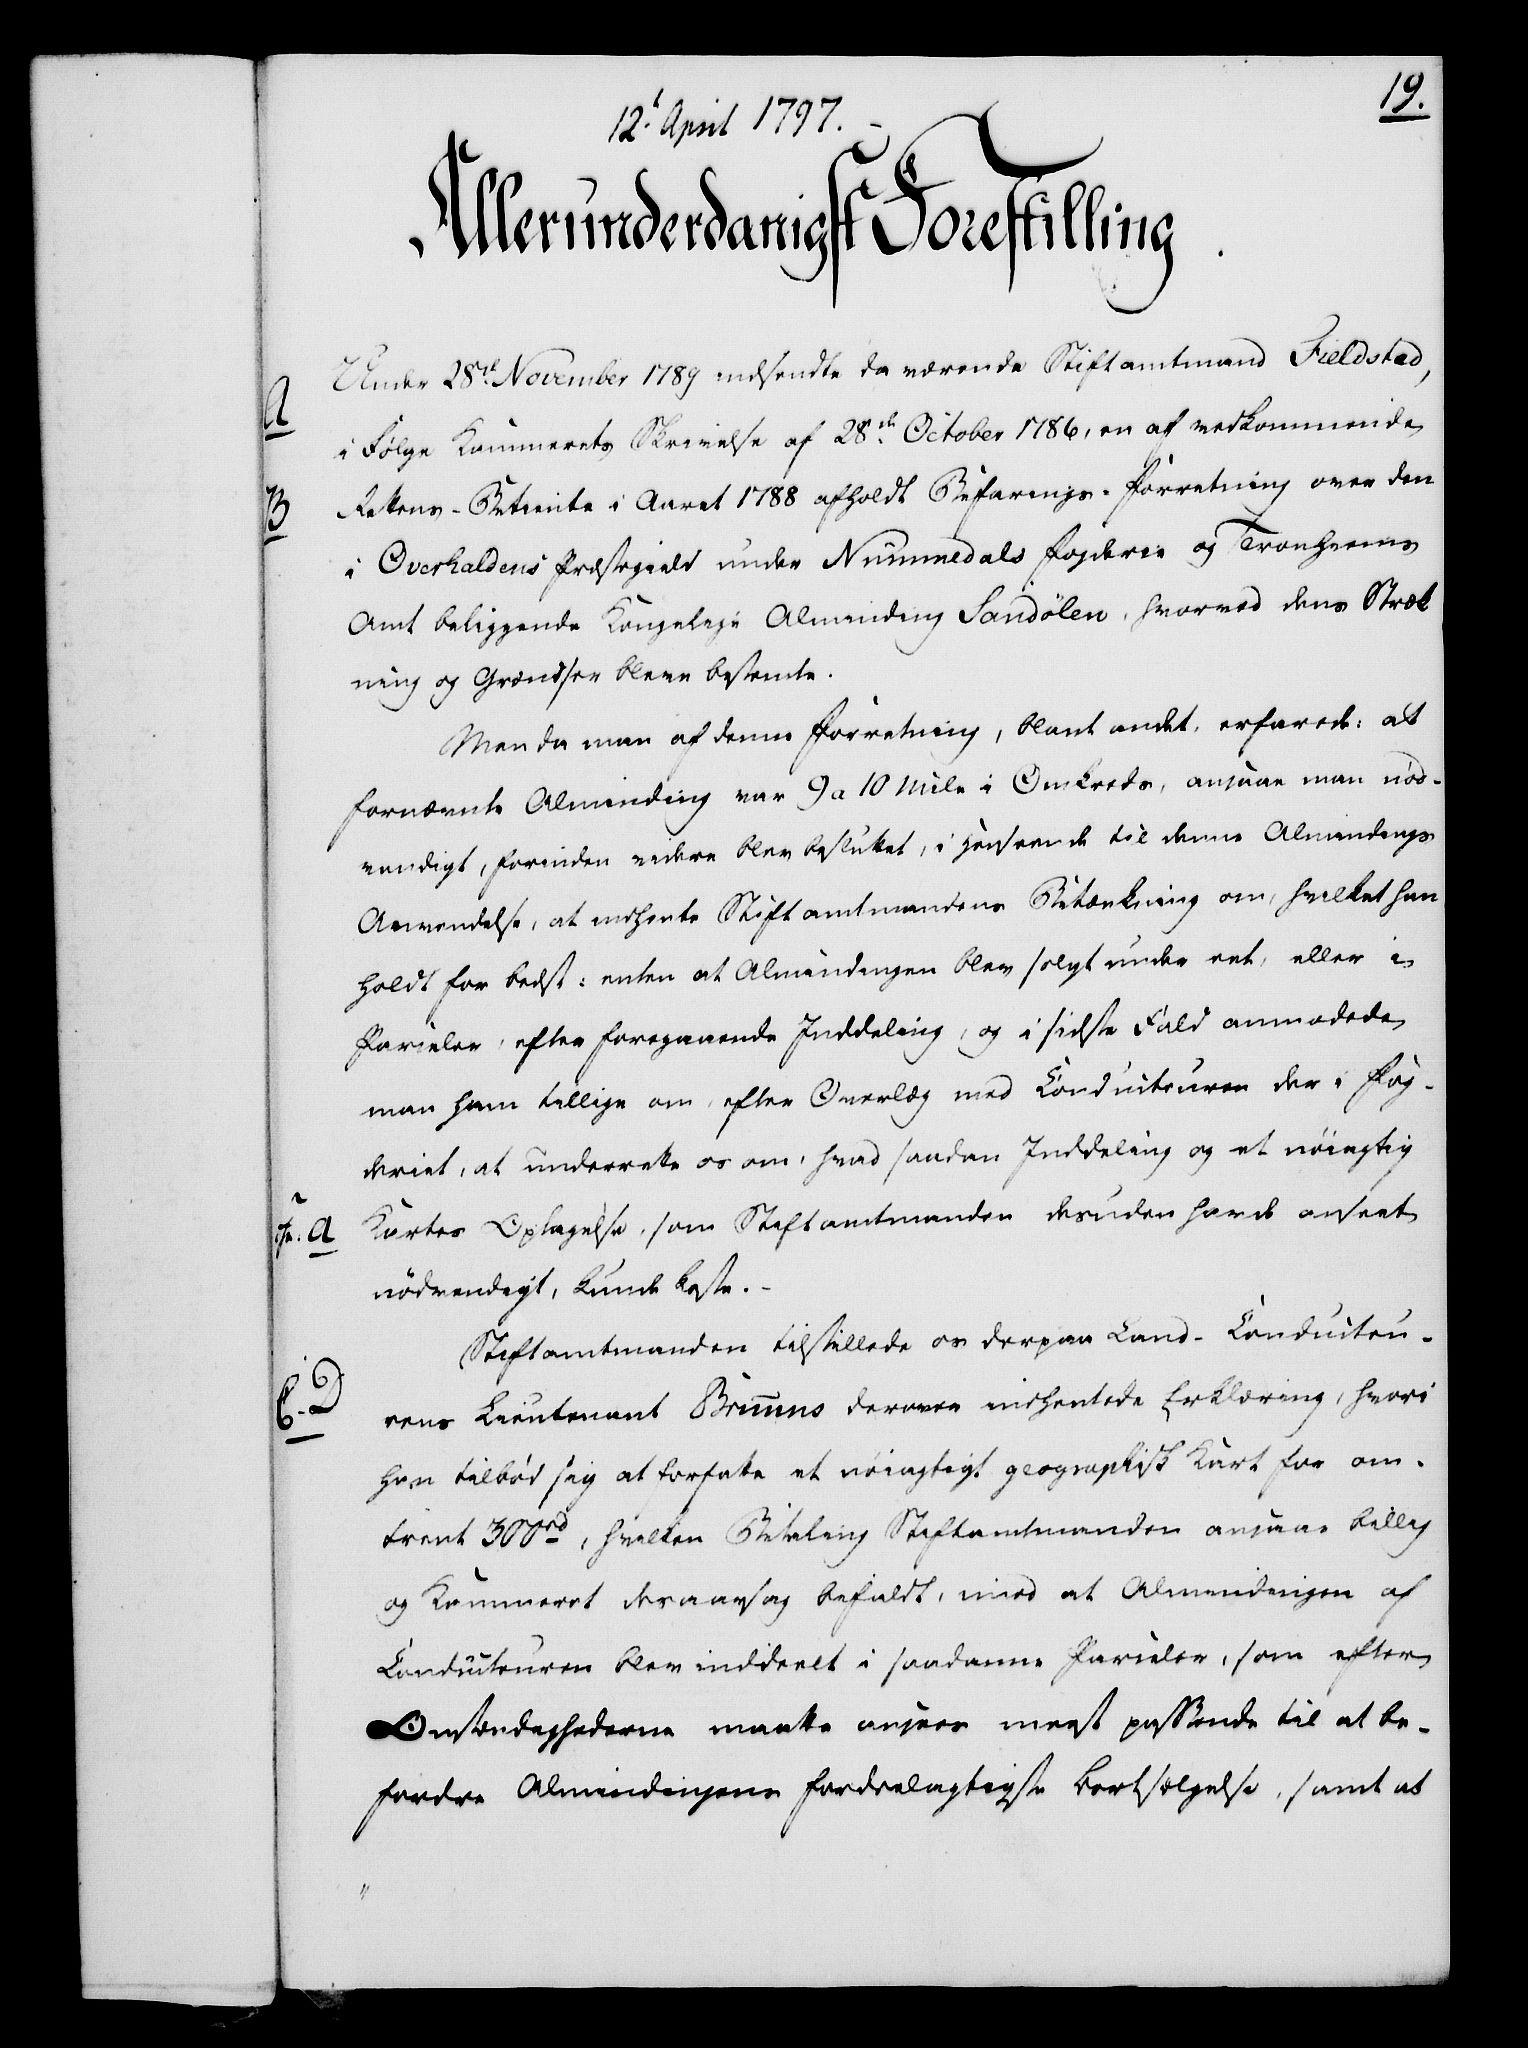 19.
12t April 1797. -
Allerunderdanigst Forestilling.
Under 28de November 1789 indsendte da værende Stiftamtmand Fieldstad,
A
i Følge Kammerets Skrivelse af 28de October 1786, en af vedkommende
B
Rettens-Betiente i Aaret 1788 afholdt Befarings-Forretning over den
i Overhaldens Præstegield under Nummedals Fogderie og Tronhiems
Amt beliggende Kongelige Alminding Sandølen, hvorved dens Stræk
ning og Grændser bleve bestemte.
Men da man af denne Forretning, blant andet, erfarede: at
fornævnte Alminding var 9 a 10 Mile i Omkreds, ansaae man nød-
vendigt, forinden videre blev besluttet, i Henseende til denne Almindings
Anvendelse, at indhente Stiftamtmandens Betænkning om, hvilket han
holdt for bedst: enten at Almindingen blev solgt under eet, eller i
Parceler, efter foregaaende Inddeling, og i sidste Fald anmodede
man ham tillige om, efter Overlæg med Conducteuren der i Fog-
deriet, at underrette os om, hvad saadan Inddeling og et nøiagtig
A
Kartes Optagelse, som Stiftamtmanden desuden havde anseet
nødvendigt, kunde koste. -
Stiftamtmanden tilstillede os derpaa Land-Conducteu-
C. D
rens Lieutenant Bruuns derover indhentede Erklæring, hvori
han tilbød sig at forfatte et nøiagtigt geographisk Kart for om-
trent 300rd, hvilken Betaling Stiftamtmanden ansaae billig
og Kammeret desaarsag befaldt, med at Almindingen af
Conducteuren blev inddeelt i saadanne Parceler, som efter
Omstændighederne maatte ansees meest passende til at be-
fordre Almindingens fordeelagtigste Bortsælgelse, samt at
"